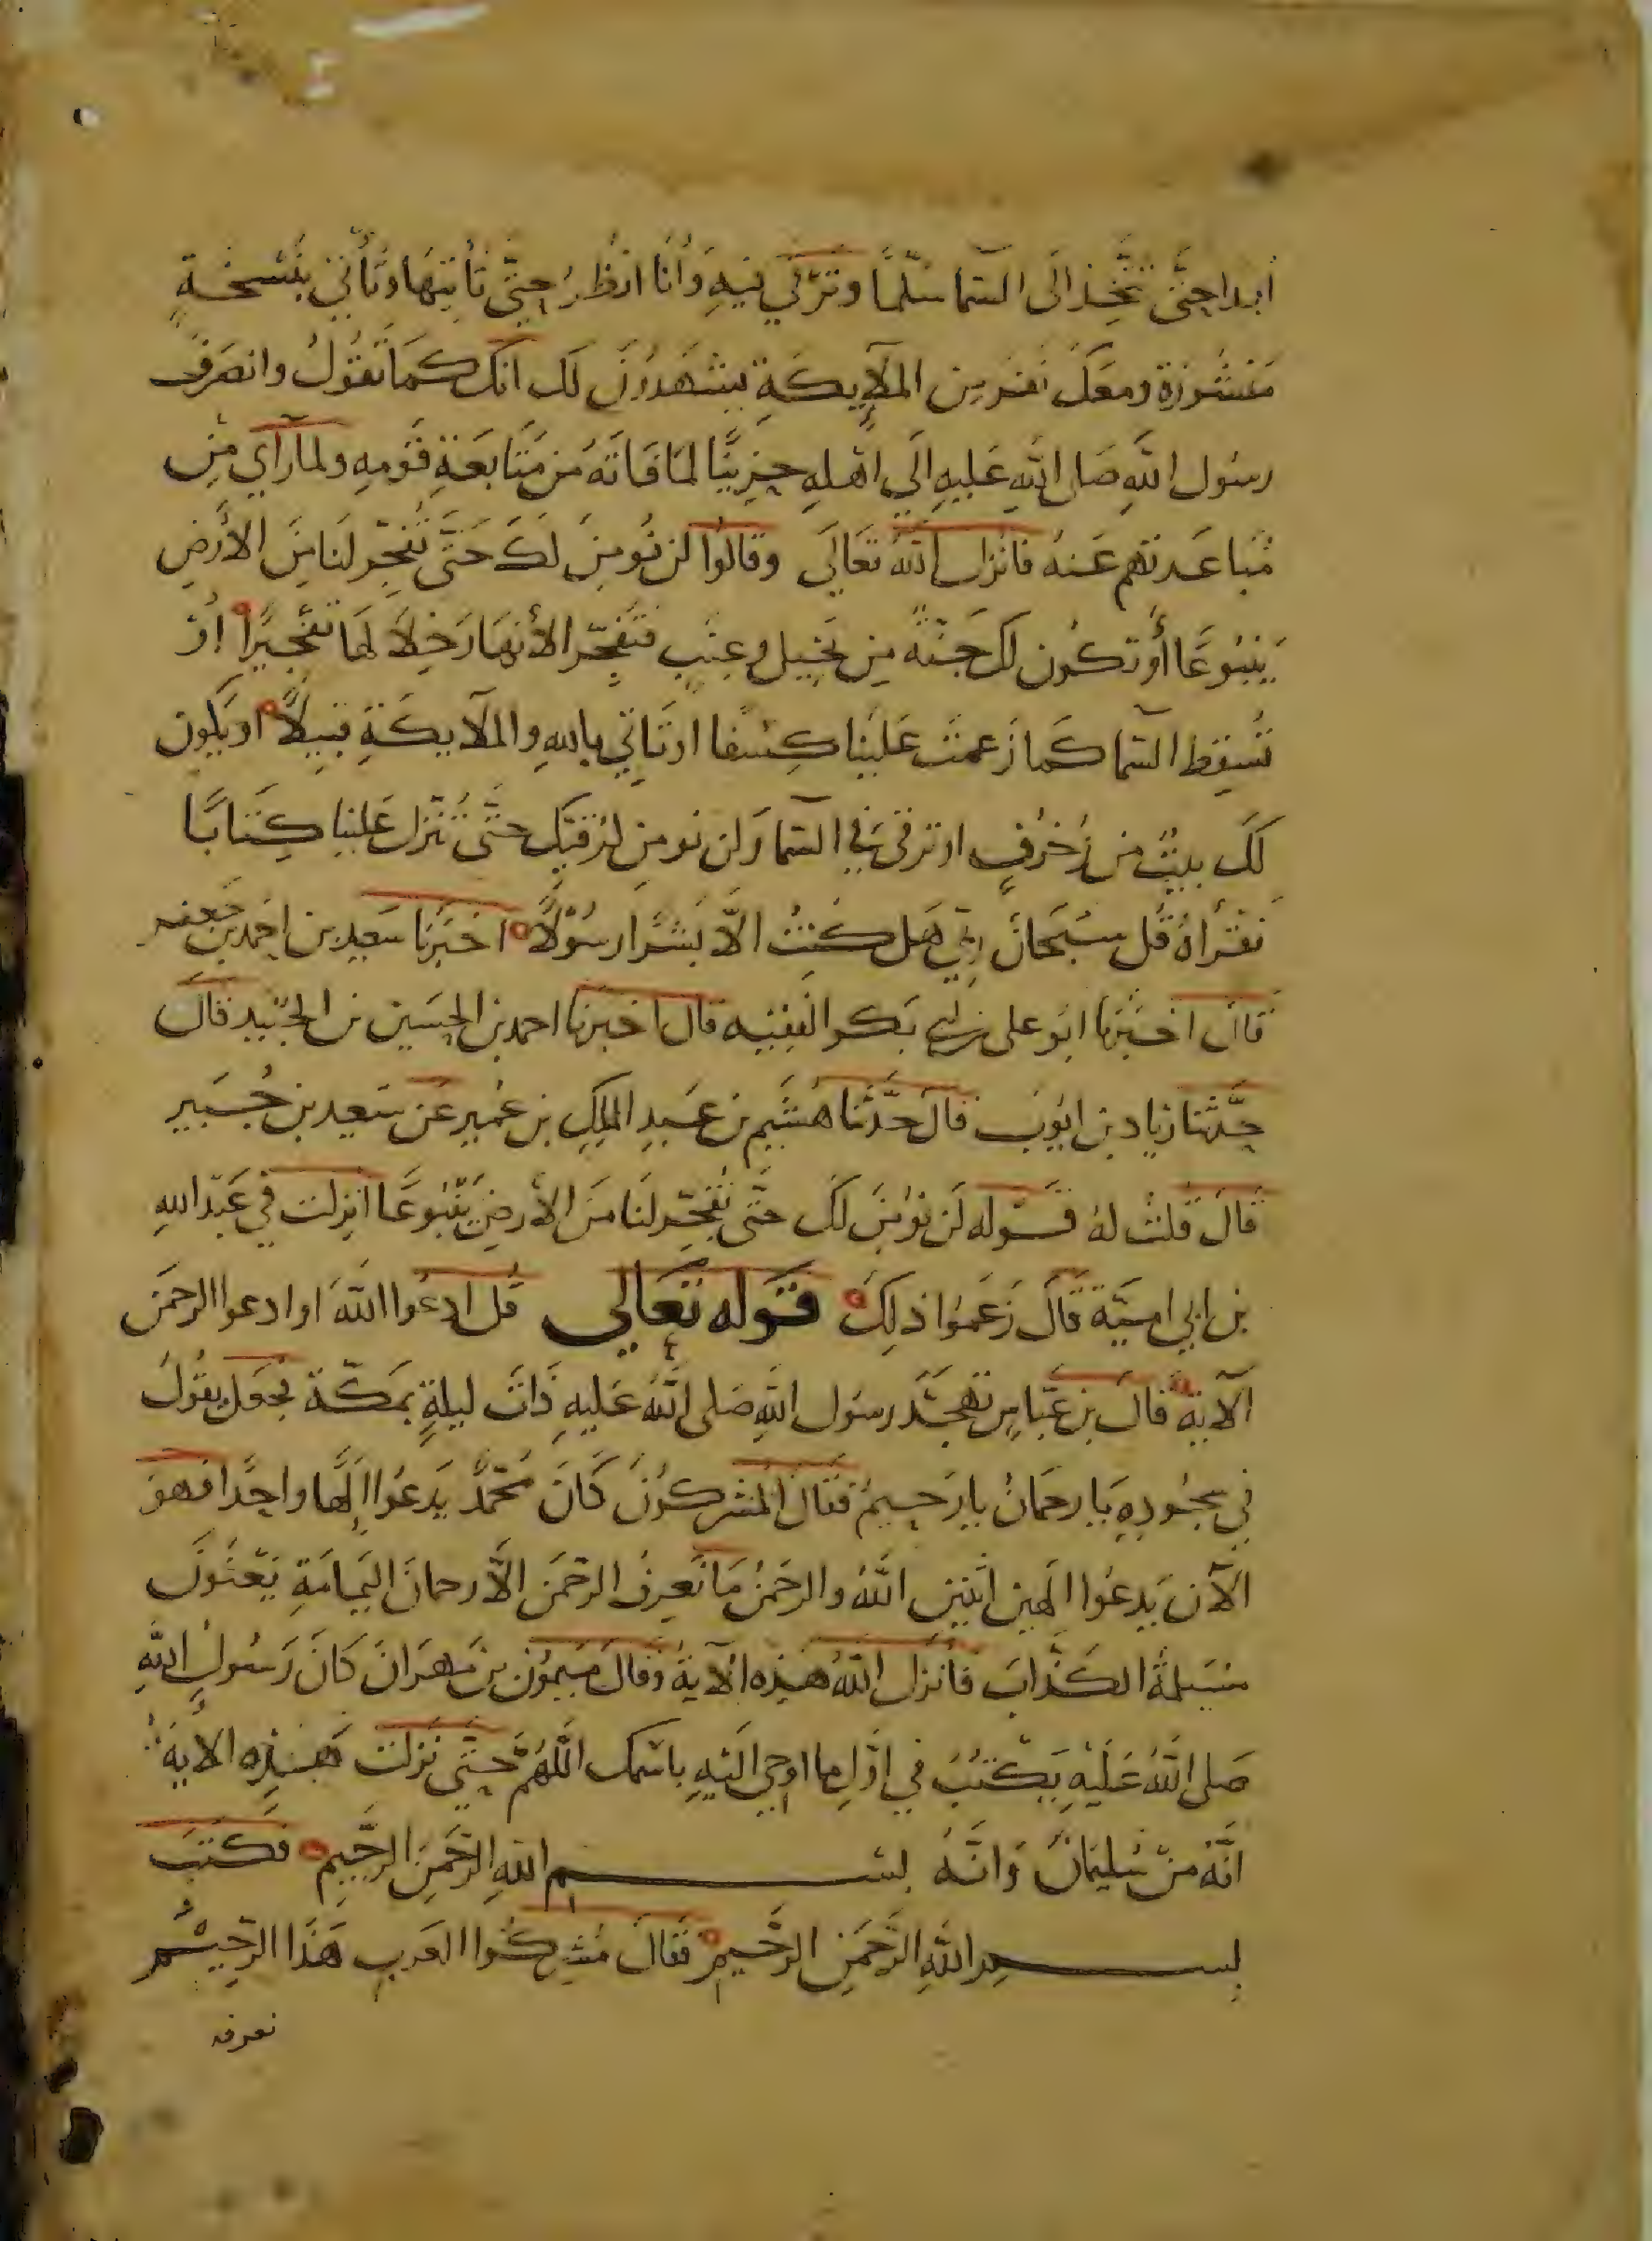 ابدا حتى تتخذ الى السما سلما وترقي فيه وانا انظر حتى تاتيها وتاتي بنسخة
منشورة ومعك نفر من الملايكة يشهدون لك انك كما تقول وانصرف
رسول الله صلى الله عليه الي اهله حزينا لما فاته من متابعة قومه ولما راي من
مباعدتهم عنه فانزل الله تعالى وقالوا لن نومن لك حتى تفجر لنا من الأرض
ينبوعا أو تكون لك جنة من نخيل وعنب فتفجر الأنهار خلالها تفجيرا او
تسقط السما كما زعمت علينا كسفا او تاتي بالله والملايكة قبيلا او يكون
لك بيت من زخرف او ترقى في السما ولن نومن لرقيك حتى تنزل علينا كتابا
نقرأه قل سبحان ربي هل كنت الا بشرا رسولا اخبرنا سعيد بن احمد بن جعفر
قال اخبرنا ابو على بن ابي بكر الفقيه قال اخبرنا احمد بن الحسين بن الجنيد قال
حدثنا زياد بن ايوب قال حدثنا هشيم بن عبد الملك بن عمير عن سعيد بن جبير
قال قلت له قوله لن نومن لك حتى تفجر لنا من الأرض ينبوعا انزلت في عبد الله
بن ابي امية قال زعموا ذلك قوله تعالي قل ادعوا الله او ادعوا الرحمن
الآية قال بن عباس تهجد رسول الله صلى الله عليه ذات ليلة بمكة فجعل يقول
في سجوده يا رحمان يا رحيم فقال المشركون كان محمد يدعوا إلها واحدا فهو
الآن يدعوا الهين اثنين الله والرحمن ما نعرف الرحمن الا رحمان اليمامة يعنون
مسيلمة الكذاب فانزل الله هذه الآية وقال ميمون بن مهران كان رسول الله
صلى الله عليه يكتب في اول ما اوحي اليه باسمك اللهم حتى نزلت هذه الاية
انه من سليمان وانه بسم الله الرحمن الرحيم فكتب
بسم الله الرحمن الرحيم فقال مشركوا العرب هذا الرحيم
نعرفه